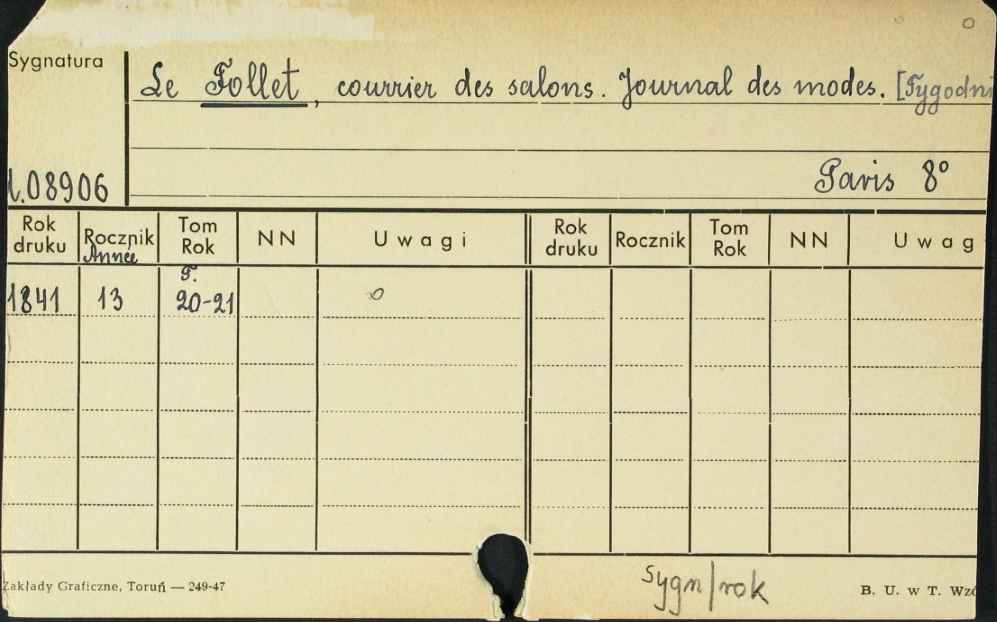 Sygnatura
Le Follet, courrier des salons. Journal des modes. [Tygodni
Paris 8°
.08906
Rok druku Rocznik Année Tom Rok NN Uwagi Rok druku Rocznik Tom Rok NN Uwag
1841 13 T. 20-21
Zakłady Graficzne, Toruń — 249-47
Sygn/rok
B. U. w T. Wzó